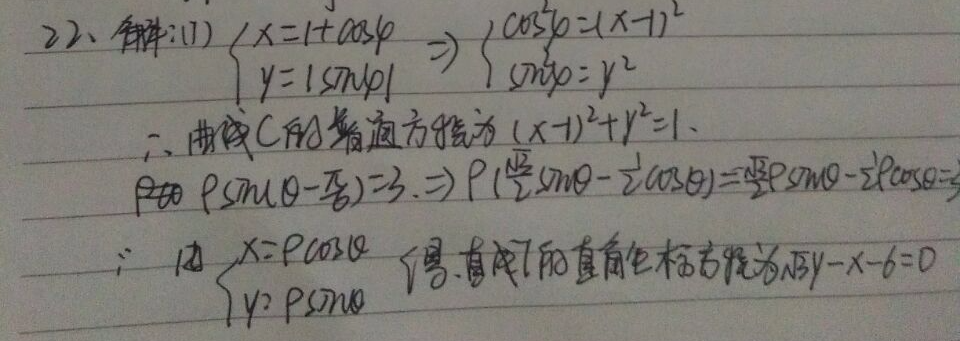 22、解:(1) {x=1+cosφ y=|sinφ| ⇒ {cos²φ=(x-1)² sin²φ=y²
∴曲线C的普通方程为(x-1)²+y²=1.
ρsin(θ-π/6)=3.⇒ρ(√3/2 sinθ-1/2 cosθ)=√3/2 ρsinθ-1/2 ρcosθ=3
∴由{x=ρcosθ y=ρsinθ 得.直线l的直角坐标方程为√3y-x-6=0